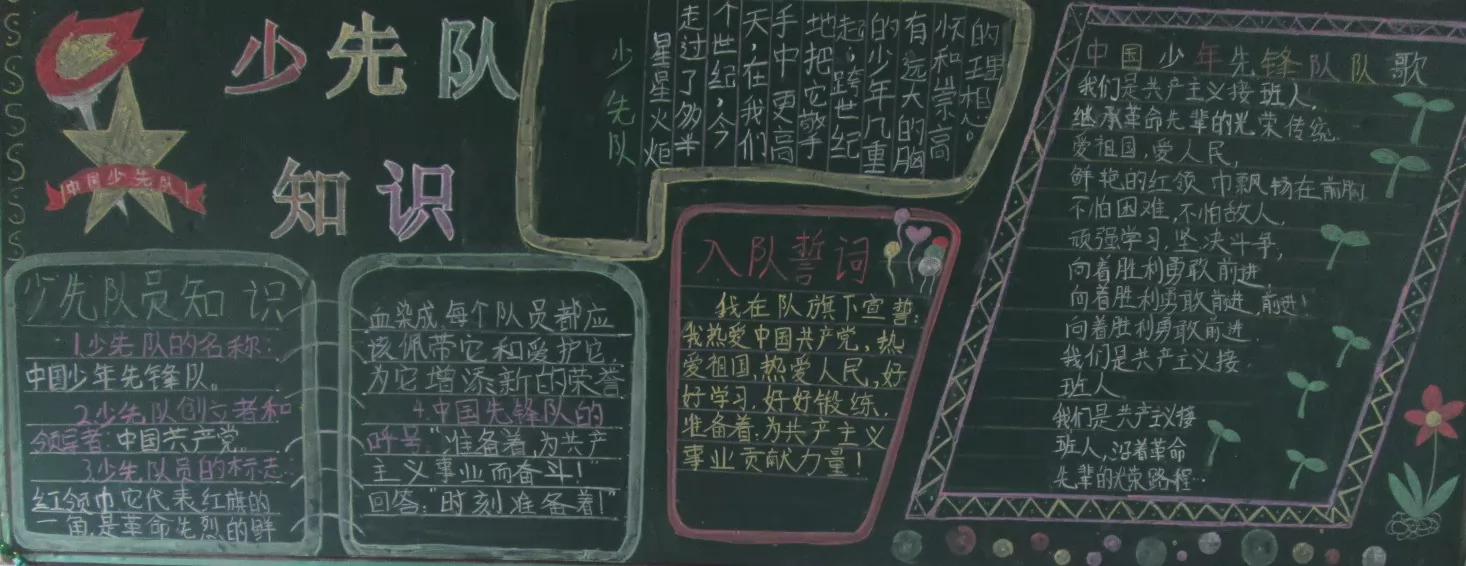 少先队
知识
中国少先队
少先队员知识
1.少先队的名称:
中国少年先锋队。
2.少先队创立者和
领导者:中国共产党。
3.少先队员的标志:
红领巾它代表红旗的
一角,是革命先烈的鲜
血染成,每个队员都应
该佩带它和爱护它,
为它增添新的荣誉
4.中国先锋队的
呼号:“准备着,为共产
主义事业而奋斗!”
回答:“时刻准备着!”
少先队
星星火炬
走过了多半
个世纪,今
天,在我们
手中更高
地把它擎
起;跨世纪
的少年几重
有远大的胸
怀和崇高
的理想。
入队誓词
我在队旗下宣誓:
我热爱中国共产党,热
爱祖国,热爱人民,好
好学习,好好锻练,
准备着:为共产主义
事业贡献力量!
中国少年先锋队队歌
我们是共产主义接班人,
继承革命先辈的光荣传统,
爱祖国,爱人民,
鲜艳的红领巾飘杨在前胸
不怕困难,不怕敌人,
顽强学习,坚决斗争,
向着胜利勇敢前进
向着胜利勇敢前进,前进!
向着胜利勇敢前进.
我们是共产主义接.
班人
我们是共产主义接
班人,沿着革命
先辈的光荣路程…